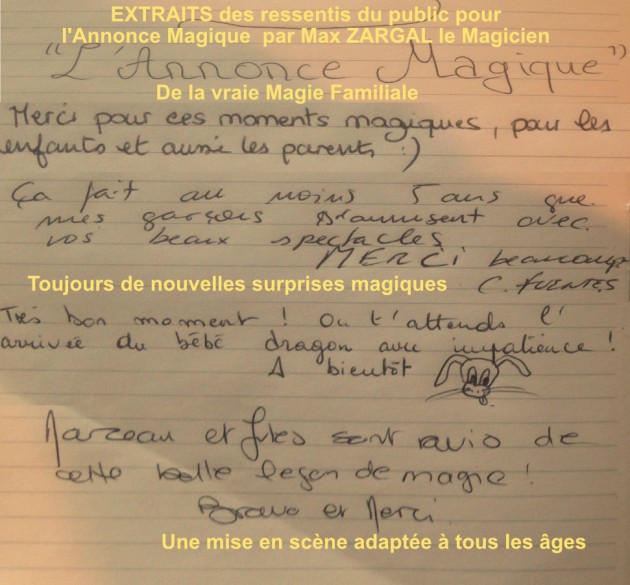 EXTRAITS des ressentis du public pour
l'Annonce Magique par Max ZARGAL le Magicien
"L'Annonce Magique"
De la vraie Magie Familiale
Merci pour ces moments magiques, pour les
enfants et aussi les parents :)
Ça fait au moins 5 ans que
mes garçons s'amusent avec
vos beaux spectacles
MERCi beaucoup
Toujours de nouvelles surprises magiques
C. FUENTES
Très bon moment ! On t'attends l'
arrivée du bébé dragon avec impatience !
A bientôt
et Jules sont ravis de
cette belle leçon de magie !
Bravo et Merci
Une mise en scène adaptée à tous les âges